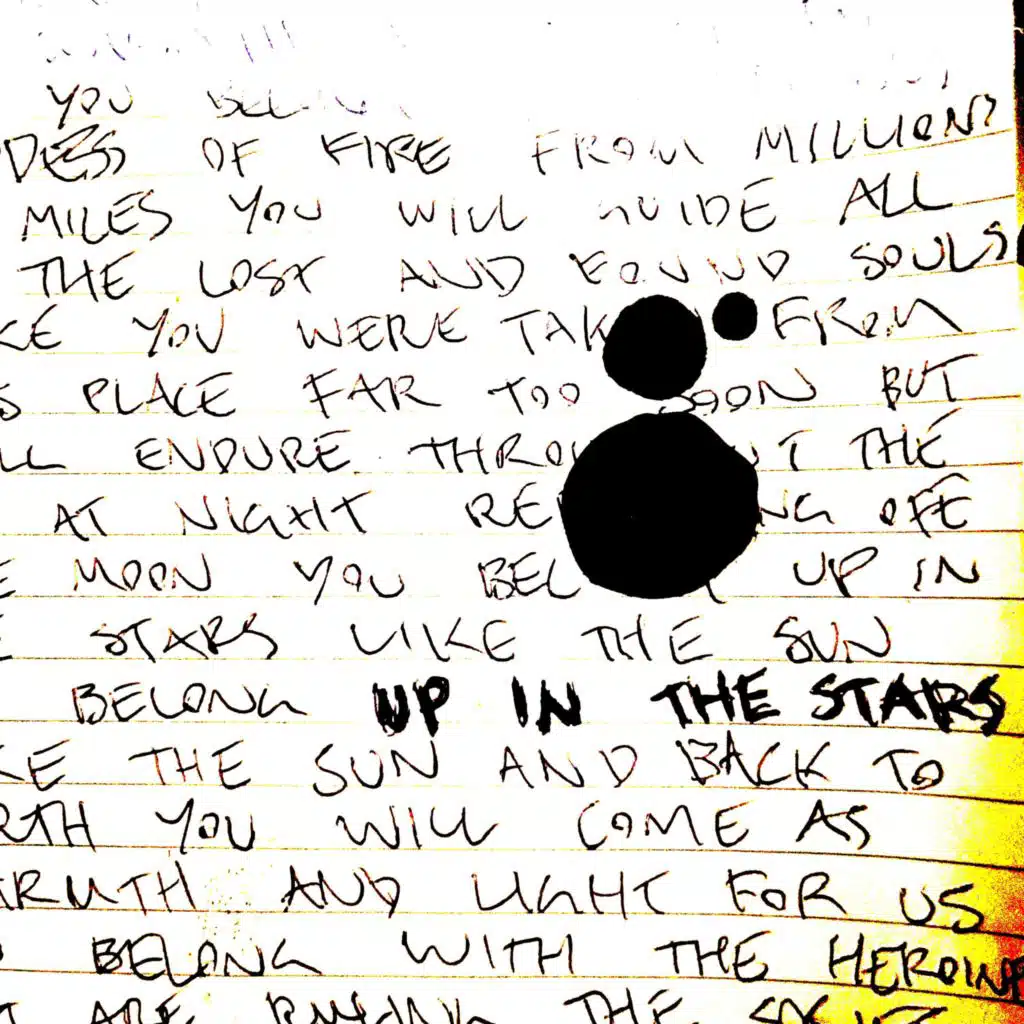 YOU BEL
DESS OF FIRE FROM MILLIONS
MILES YOU WILL GUIDE ALL
THE LOST AND FOUND SOULS
KE YOU WERE TAK FROM
S PLACE FAR TOO SOON BUT
LL ENDURE THRO T THE
AT NIGHT RE NG OFF
E MOON YOU BEL UP IN
E STARS LIKE THE SUN
BELONG UP IN THE STARS
KE THE SUN AND BACK TO
RTH YOU WILL COME AS
RUTH AND LIGHT FOR US
BELONG WITH THE HEROINE
T ARE THE